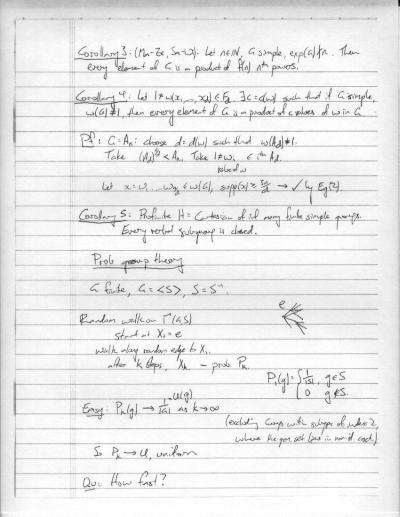 Corollary 3: (Ma-Ze, Sa-W): Let n∈ℕ, G simple, exp(G)∤n. Then
every element of G is a product of f(n) nth powers.
Corollary 4: Let 1≠w(x₁,...,x_d)∈F_d. ∃c=c(w) such that if G simple,
w(G)≠1, then every element of G is a product of c values of w in G.
Pf: G=Aₙ: choose d=d(w) such that w(A_d)≠1.
Take (A_d)^{n/d} < Aₙ. Take 1≠wᵢ ∈ iᵗʰ A_d.
value of w
Let x = w₁...w_{n/d} ∈ w(G), supp(x) ≥ n/d → ✓ by Eg(2).
Corollary 5: Profinite H = Cartesian of inf many finite simple groups.
Every verbal subgroup is closed.
Prob group theory
G finite, G=<S>, S=S⁻¹.
Random walk on Γ(G,S)
e
start at X₀=e
walk along random edge to X₁.
after k steps, X_k - prob P_k.
P₁(g) = { 1/|S|, g∈S
0 g∉S.
Easy: P_k(g) → 1/|G| as k→∞
U(g)
(excluding Gps with subgps of index 2,
where the gen set lies in
So P_k → U, uniform
Qu: How fast?